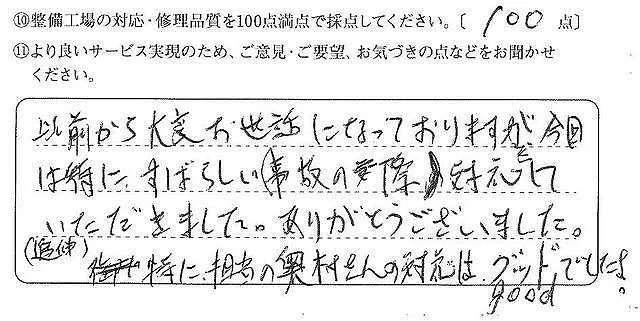 ⑩整備工場の対応・修理品質を100点満点で採点してください。〔 100 点〕
⑪より良いサービス実現のため、ご意見・ご要望、お気づきの点などをお聞かせ
ください。
以前から大変お世話になっておりますが、今回
は特にすばらしい(事故の実際)対応をして
いただきました。ありがとうございました。
(追伸) 特に、担当の奥村さんの対応は、グッドでしたよ。
good